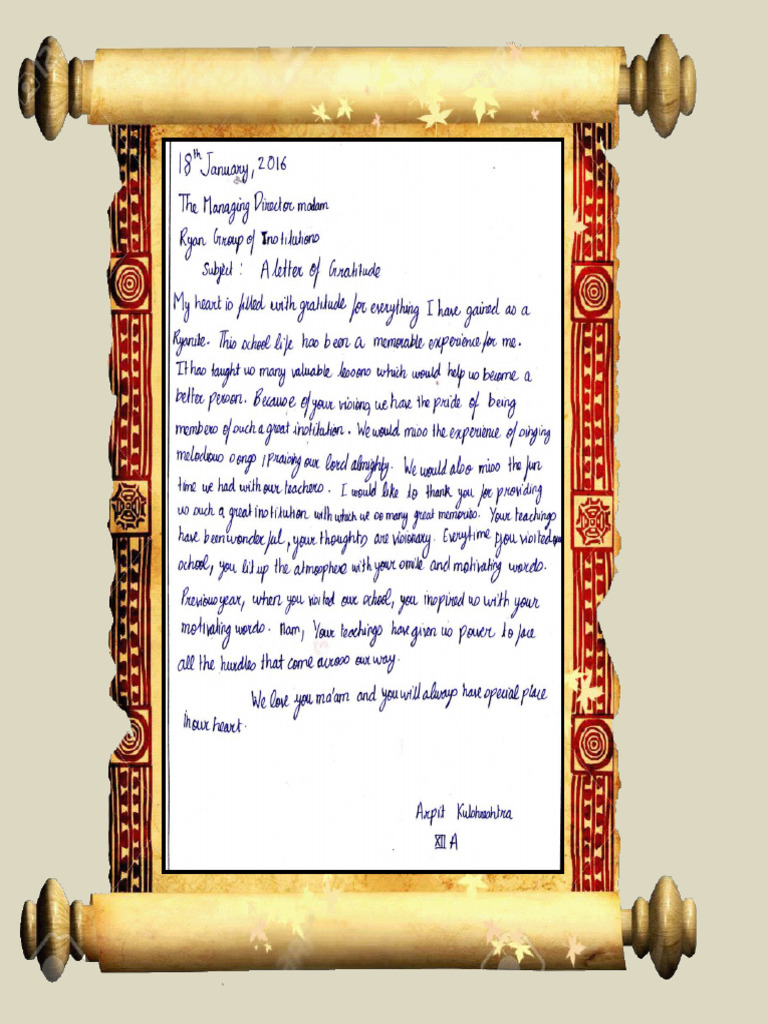 18th January, 2016
The Managing Director madam
Ryan Group of Institutions
Subject : A letter of Gratitude
My heart is filled with gratitude for everything I have gained as a
Ryanite. This school life has been a memorable experience for me.
It has taught us many valuable lessons which would help us become a
better person. Because of your visions, we have the pride of being
members of such a great institution. We would miss the experience of singing
melodious songs, praising our lord almighty. We would also miss the fun
time we had with our teachers. I would like to thank you for providing
us such a great institution with which we so many great memories. Your teachings
have been wonderful, your thoughts are visionary. Everytime you visited our
school, you lit up the atmosphere with your smile and motivating words.
Previous year, when you visited our school, you inspired us with your
motivating words. Mam, Your teachings have given us power to face
all the hurdles that come across our way.
We love you ma'am and you will always have special place
in our heart.
Arpit Kulshreshtra
XII A